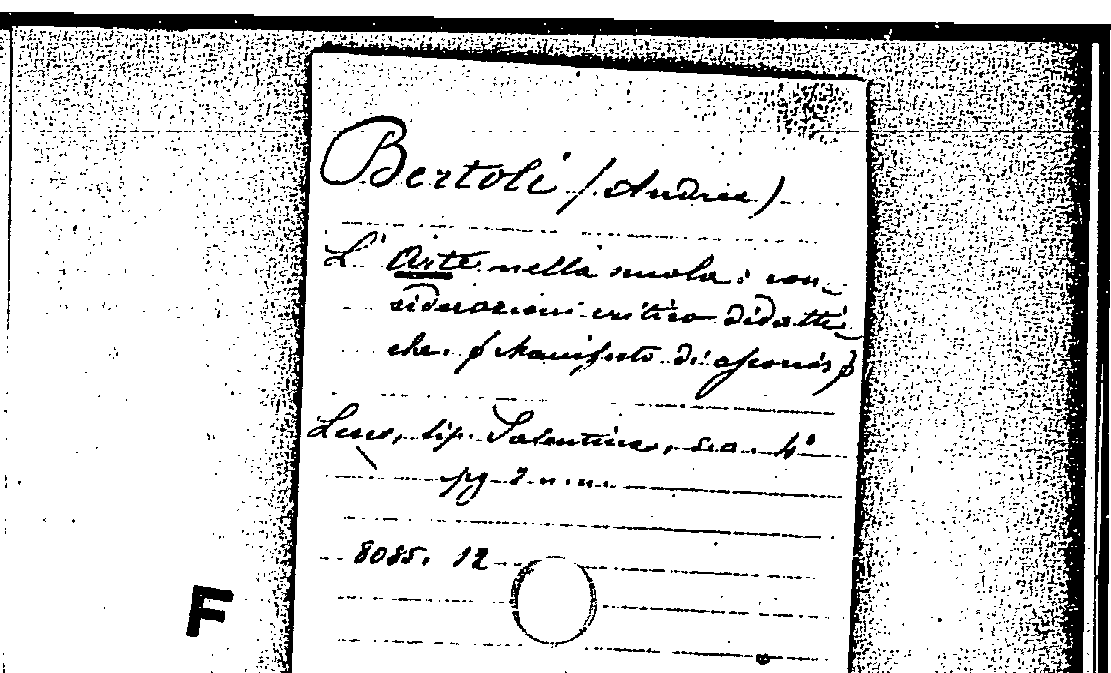 Bertoli (Andrea)
L'Arte nella scuola: con-
siderazioni critico didatti-
che. (Manifesto di
Lecce, tip. Salentina, s. a. 4°
pg 2 n. n.
8085. 12
F